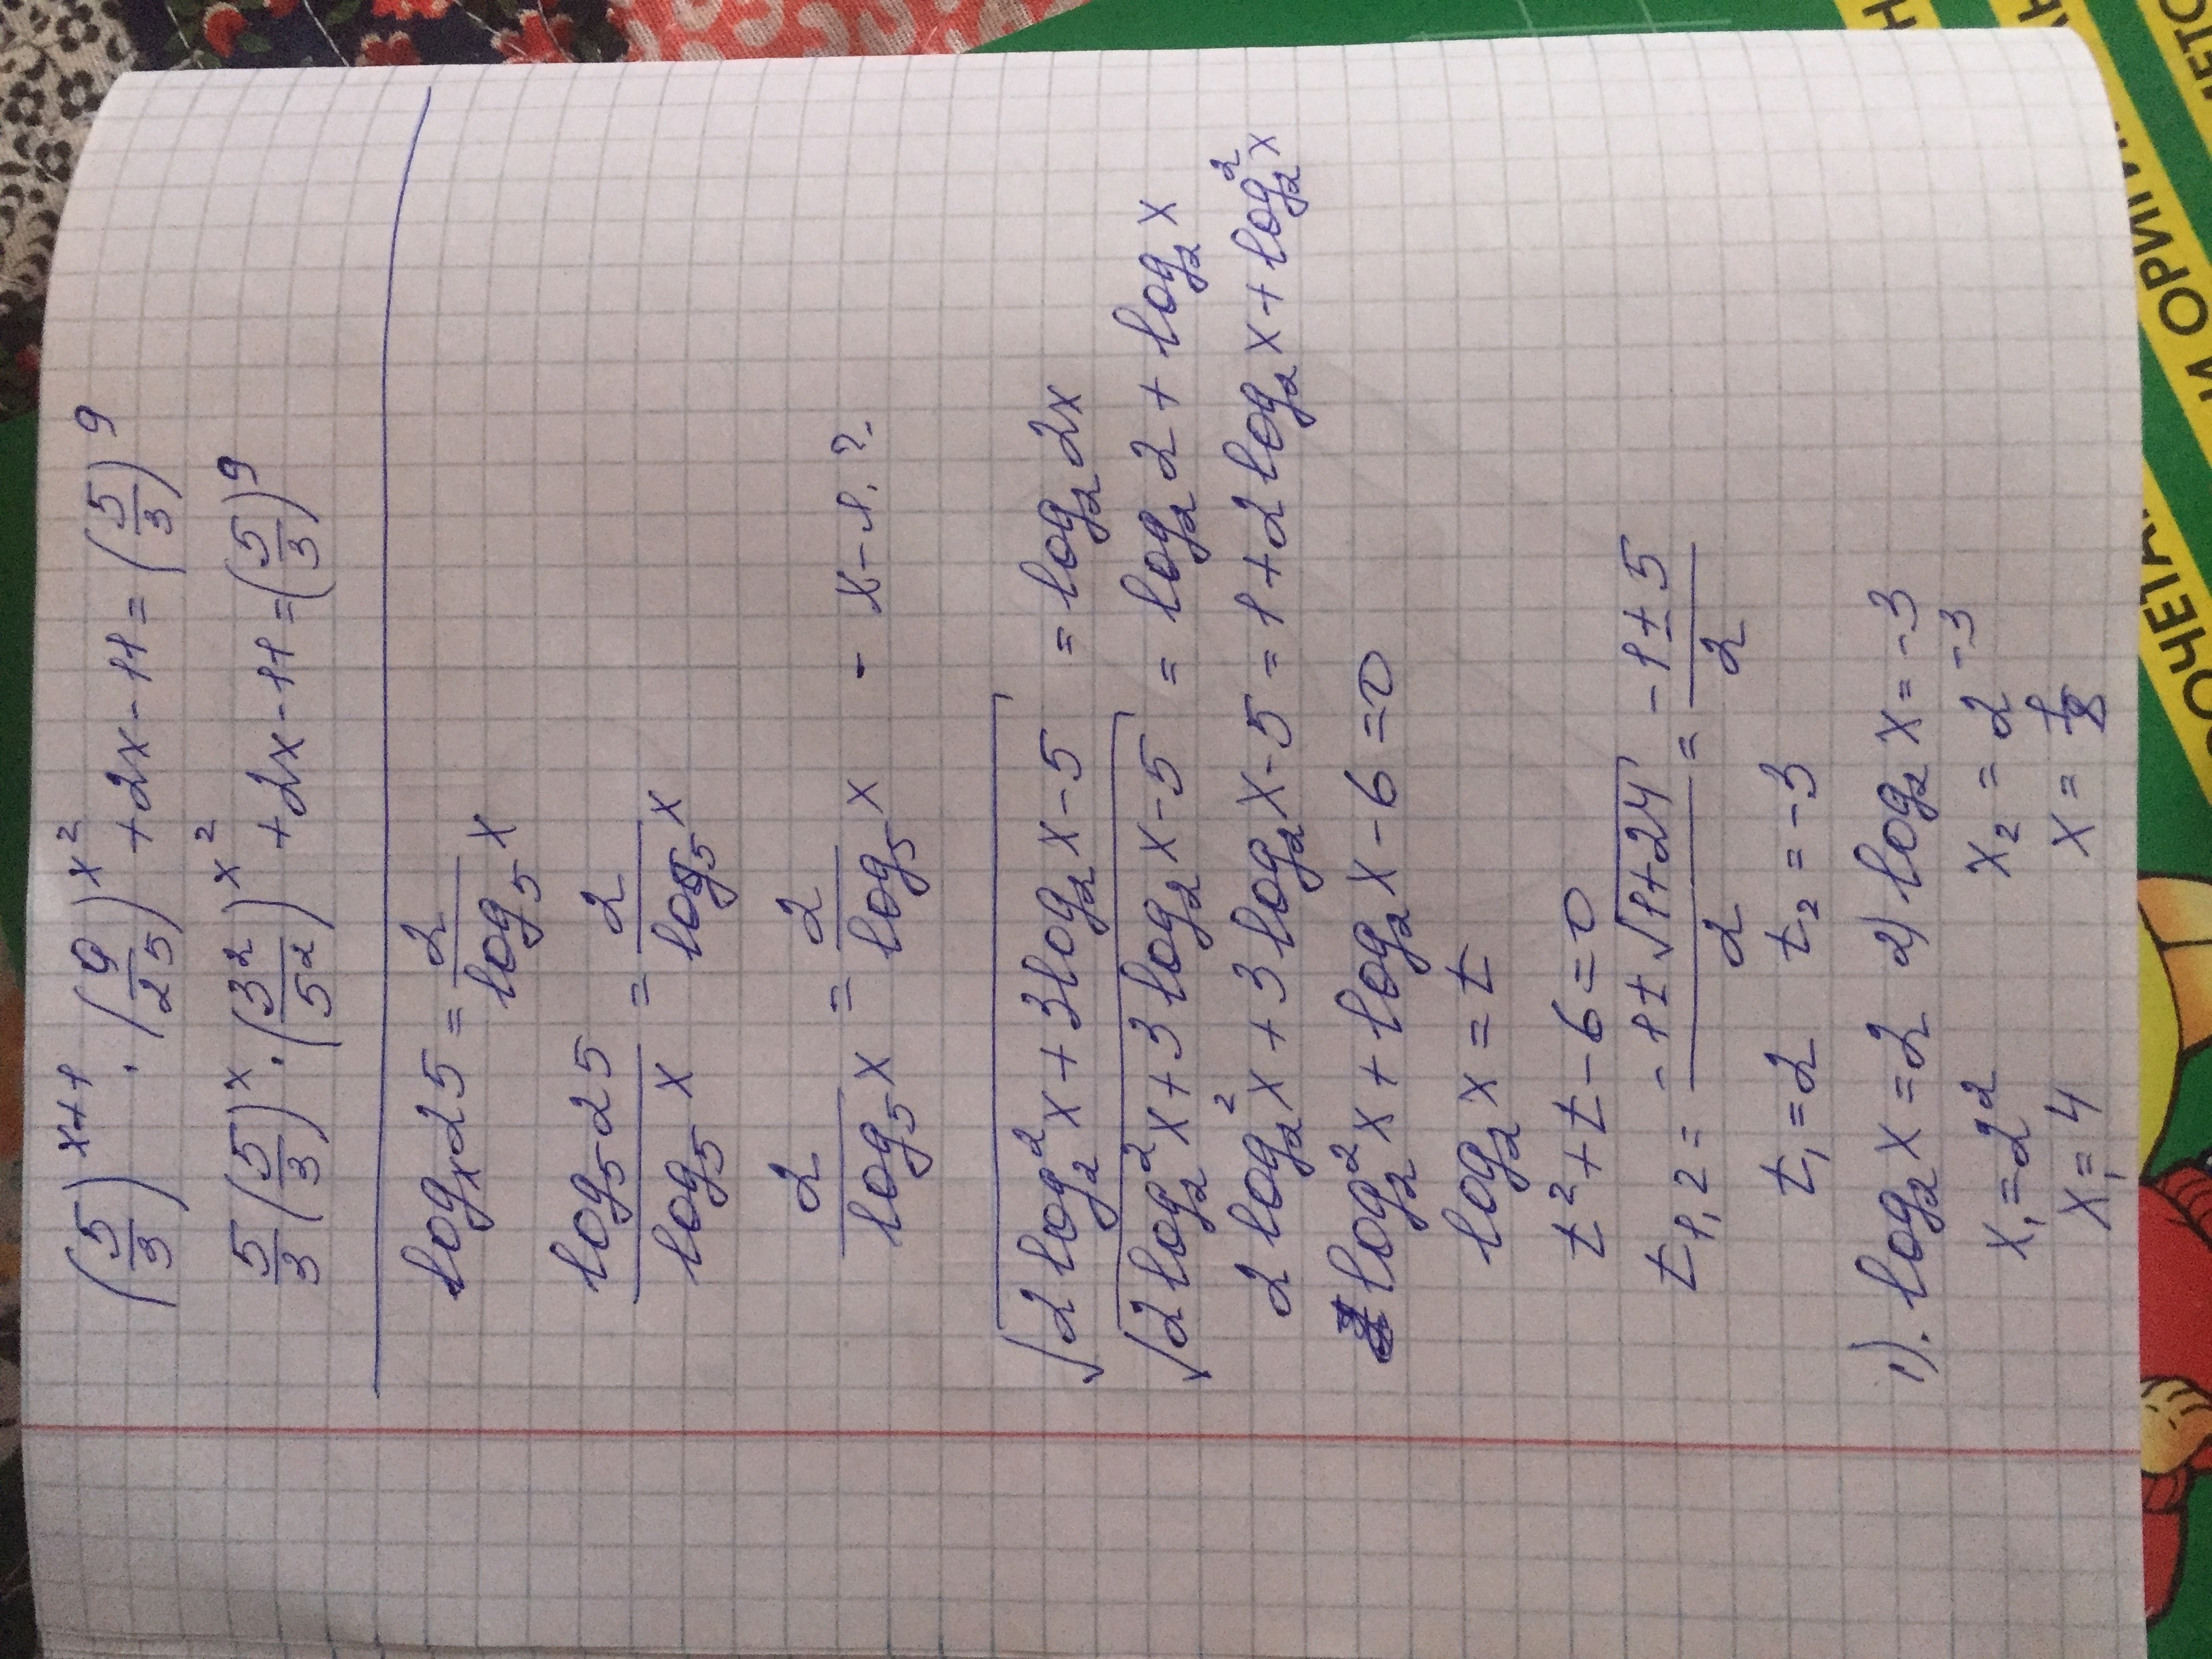 (5/3)^(x+1) · (9/25)^(x^2) + 2x - 11 = (5/3)^9
5/3 (5/3)^x · (3^2/5^2)^(x^2) + 2x - 11 = (5/3)^9
log_x 25 = 2/log_5 x
log_5 25/log_5 x = 2/log_5 x
2/log_5 x = 2/log_5 x - x - 1. ?.
√(2 log_2^2 x + 3 log_2 x - 5) = log_2 2x
√(2 log_2^2 x + 3 log_2 x - 5) = log_2 2 + log_2 x
2 log_2^2 x + 3 log_2 x - 5 = 1 + 2 log_2 x + log_2^2 x
log_2^2 x + log_2 x - 6 = 0
log_2 x = t
t^2 + t - 6 = 0
t_1,2 = (-1 ± √(1+24))/2 = (-1 ± 5)/2
t_1 = 2 t_2 = -3
1). log_2 x = 2 2) log_2 x = -3
x_1 = 2^2 x_2 = 2^-3
x_1 = 4 x = 1/8
ОЧЕТА
И ОРИГИ